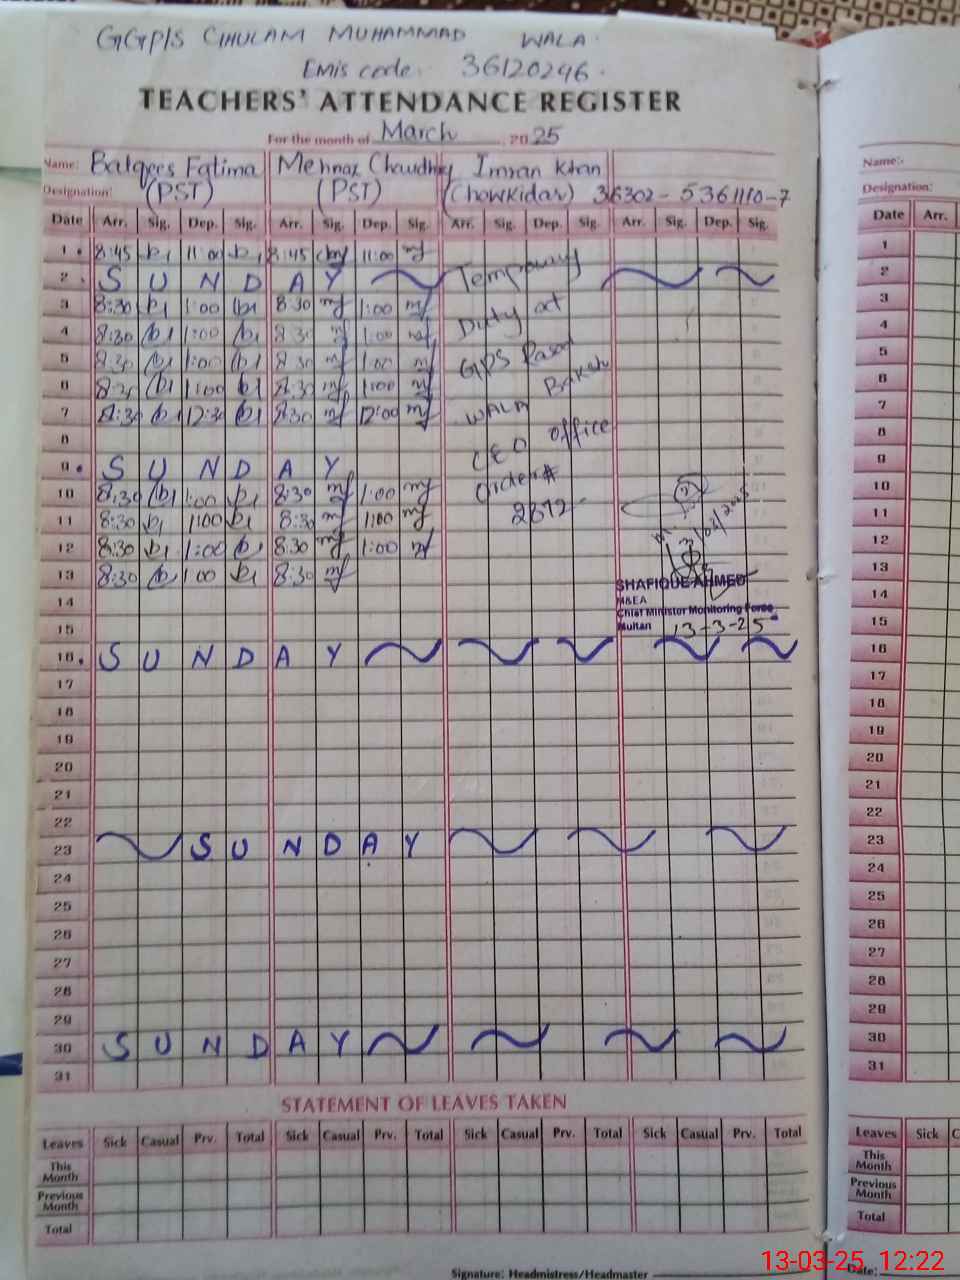 GGP/S GHULAM MUHAMMAD WALA.
EMis code. 36120246.
TEACHERS' ATTENDANCE REGISTER
For the month of March, 2025
Name: Balqees Fatima Mehnaz Chaudhry Imran Khan
Designation: (PST) (PST) (Chowkidar) 36302-5361110-7
Date Arr. Sig. Dep. Sig. Arr. Sig. Dep. Sig. Arr. Sig. Dep. Sig. Arr. Sig. Dep. Sig.
1 8:45 11:00 8:45 11:00 Temporary
2 S U N D A Y
3 8:30 1:00 8:30 1:00 Duty at
4 8:30 1:00 8:30 1:00
5 8:30 1:00 8:30 1:00 GPS
6 8:30 1:00 8:30 1:00
7 8:30 12:30 8:30 12:00 WALA
8 CEO office
9 S U N D A Y
10 8:30 1:00 8:30 1:00 Order#
11 8:30 1:00 8:30 1:00 2872
12 8:30 1:00 8:30 1:00
13 8:30 1:00 8:30
SHAFIQUE AHMED
14 M&EA
Chief Minister Monitoring Force
15 Multan 13-3-25
16 S U N D A Y
17
18
19
20
21
22
23 S U N D A Y
24
25
26
27
28
29
30 S U N D A Y
31
STATEMENT OF LEAVES TAKEN
Leaves Sick Casual Prv. Total Sick Casual Prv. Total Sick Casual Prv. Total Sick Casual Prv. Total
This Month
Previous Month
Total
Signature: Headmistress/Headmaster
Name:-
Designation:
Date Arr.
1
2
3
4
5
6
7
8
9
10
11
12
13
14
15
16
17
18
19
20
21
22
23
24
25
26
27
28
29
30
31
Leaves Sick
This Month
Previous Month
Total
Date:
13-03-25 12:22